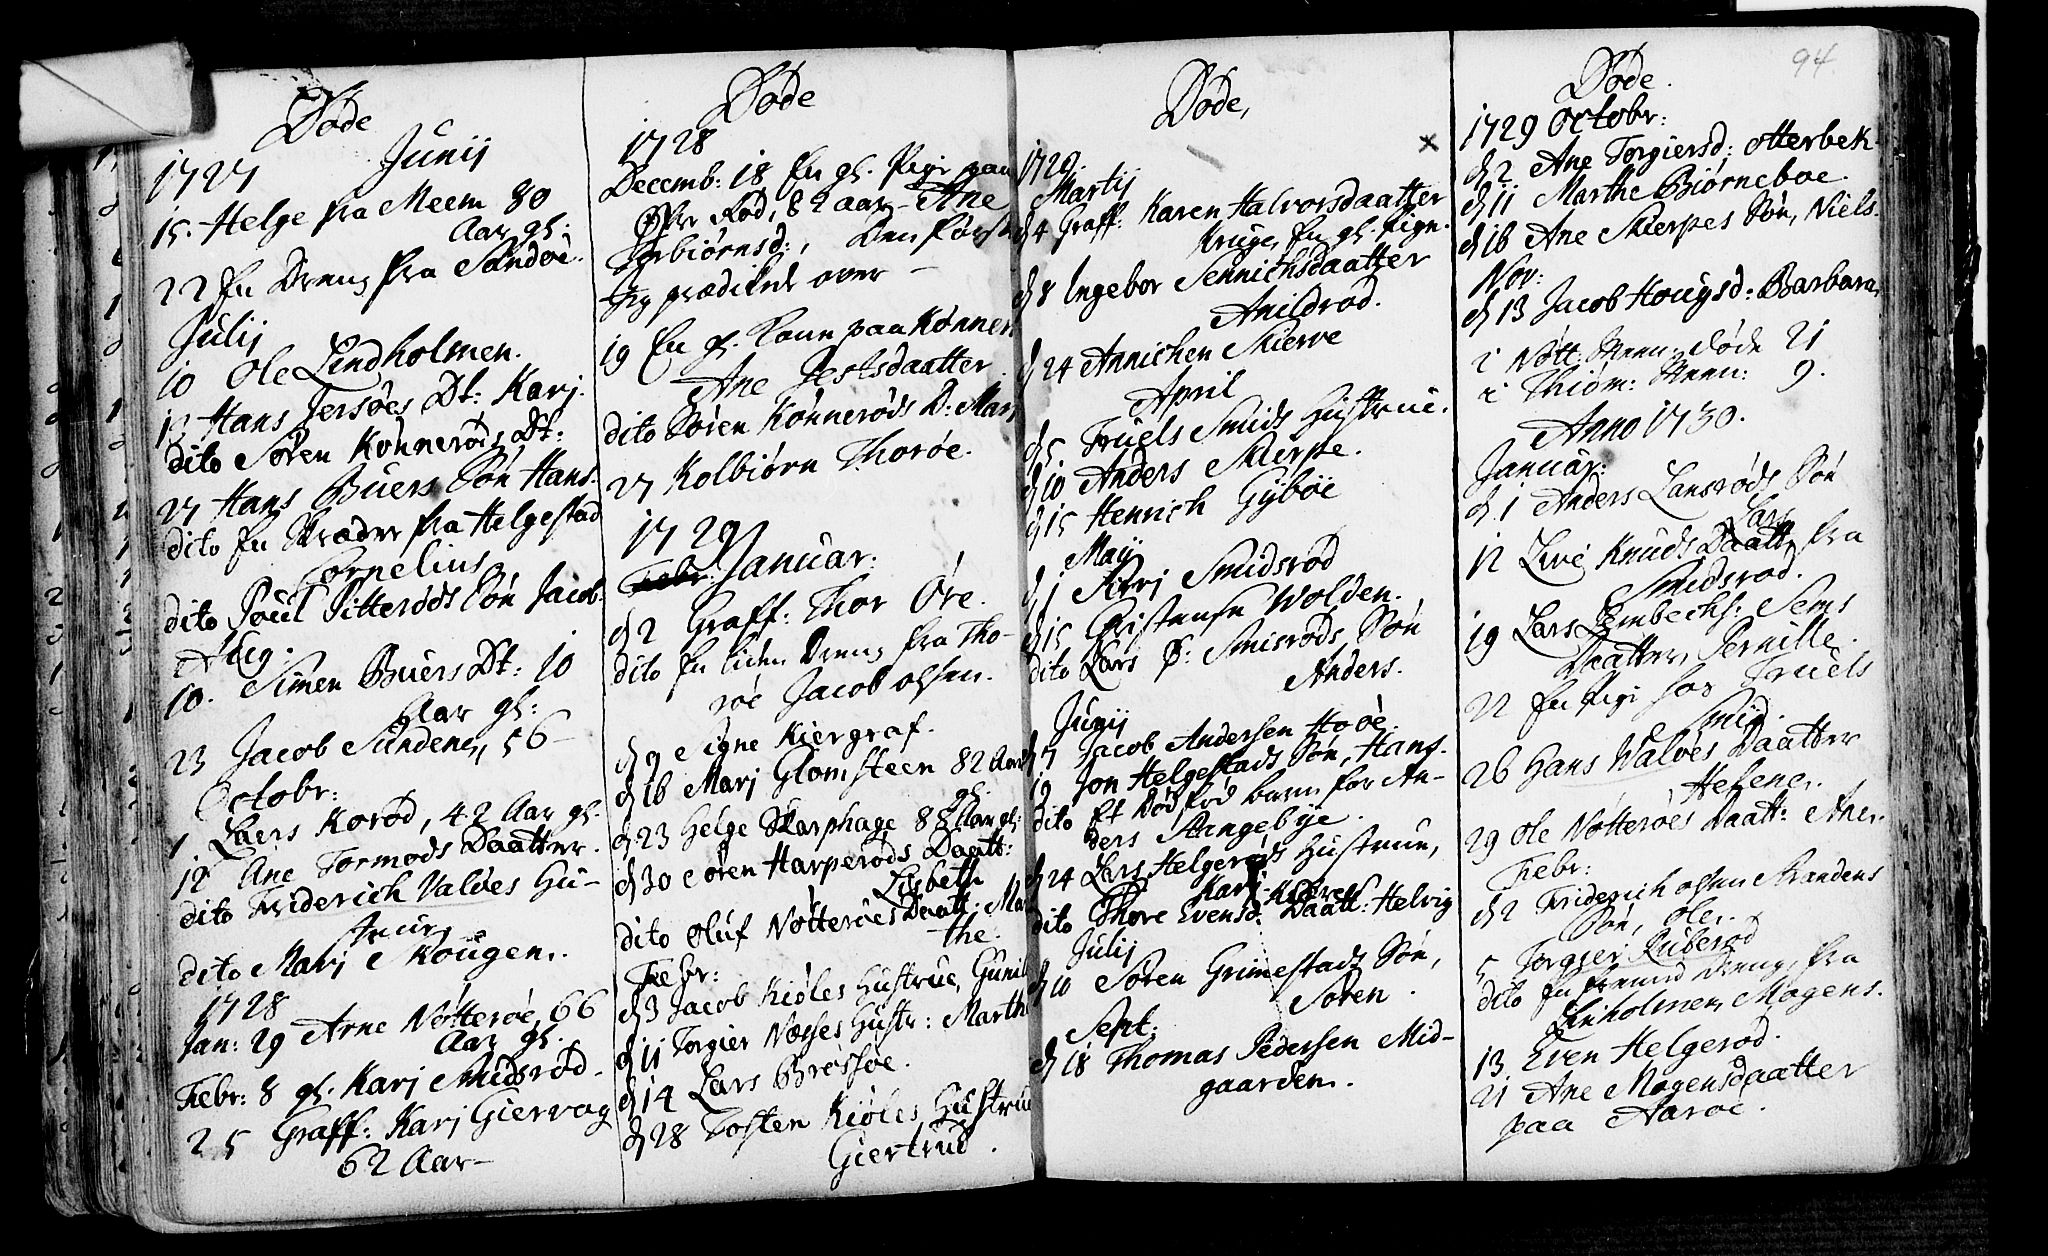 Døde
1727 Junij
15. Helge fra Meem 80
Aar gl:
22 En Dreng fra Sandøe.
Julij
10 Ole Lindholmen.
13 Hans Jersøes Dt: Karj.
dito Søren Kønnerøds Dt:
27 Hans Buers Søn Hans.
dito En Skræder fra Helgestad
Cornelius
dito Poul Pitterøds Søn Jacob.
Aug.
10. Simen Buers Dt: 10
Aar gl:
23 Jacob Sundene, 56
Octobr:
1 Laers Korød, 42 Aar gl.
12 Ane Tormods Daatter.
dito Friderich Valøes Hu-
strue
dito Marj Skougen.
1728
Jan: 29 Arne Nøtterøe, 66
Aar gl.
Febr: 8 gl. Karj Smidsrød.
25 Graff: Karj Giervog
62 Aar
Døde
1728
Decemb: 18 En gl. Pige paa
Øfre Rød, 82 aar - Ane
Torbiørnsd:, Den første
Jeg prædikede over
19 En gl. Kone paa Kønnerø
Ane Jestsdaatter
dito Søren Kønnerøds D: Marj
27 Kolbiørn Thorøe.
1729
Febr: Januar:
d 2 Graff: Thor Øre.
dito En liden Dreng fra Tho-
røe Jacob olsen.
d 9 Signe Kiergraf.
d 16 Marj Glomsteen 82 Aar
gl.
d 23 Helge Skarphage 88 Aar gl:
d 30 Søren Harperøds Daatt:
Lisbeth
dito Oluf Nøtterøes Daatt: Mar
the.
Febr:
d 3 Jacob Kiøles Hustrue, Gunil
d 11 Torgier Næsses Hustr: Marthe
d 14 Lars Bressøe.
d 28 Tosten Kiøles Hustrue
Giertrud.
Døde,
1729.
Martij
d 4 Graff: Karen Halvorsdaatter
Kruge, En gl. Pige.
d 8 Ingebor Jennichsdaatter
Anildrød.
d 24 Annichen Skierve
April
d 5 Truels Smids Hustrue.
d 10 Anders Skierpe.
d 15 Henrich Gÿbøe
Maij
d 1 Sirj Smidsrød
d 15 Christense Wolden.
dito Lars P: Smisrøds Søn
Anders.
Junij
d 7 Jacob Andersen Hoøe.
19 Jon Helgestads Søn, Hans.
dito Et Dødfød barn for An-
ders Stangebÿe.
d 24 Lars Helgerøds Hustrue,
Karj.
dito Thore Evensd: Daatt: Helvig
Julij
d 10 Søren Grimestads Søn,
Søren.
Sept:
d 18 Thomas Pedersen Mid-
gaarden.
94
Døde.
1729 Octobr:
d 2 Ane Torgiersd: Otterbek
d 11 Marthe Biørneboe.
d 16 Ane Skierpes Søn, Niels.
Nov:
d 13 Jacob Hougsd: Barbara,
i Nött: Meen: døde 21
i Thiöm: Meen: 9.
Anno 1730.
Januar:
d 1 Anders Lansrøds Søn
Lars
12 Live Knuds Daatt, fra
Smidsrød.
19 Lars Lembechs: Sems
Daatter, Pernille.
22 En Pige hos Truels
Smid.
26 Hans Valøes Daatter
Helene.
29 Ole Nøtterøes Daatt: Ane.
Febr:
d 2 Friderich olsen Strandens
Søn, Ole.
5 Torgier Ruberød
dito En fremmed Dreng, fra
Linholmen, Mogens.
13 Even Helgerød.
21 Ane Mogensdaatter
paa Aarøe.